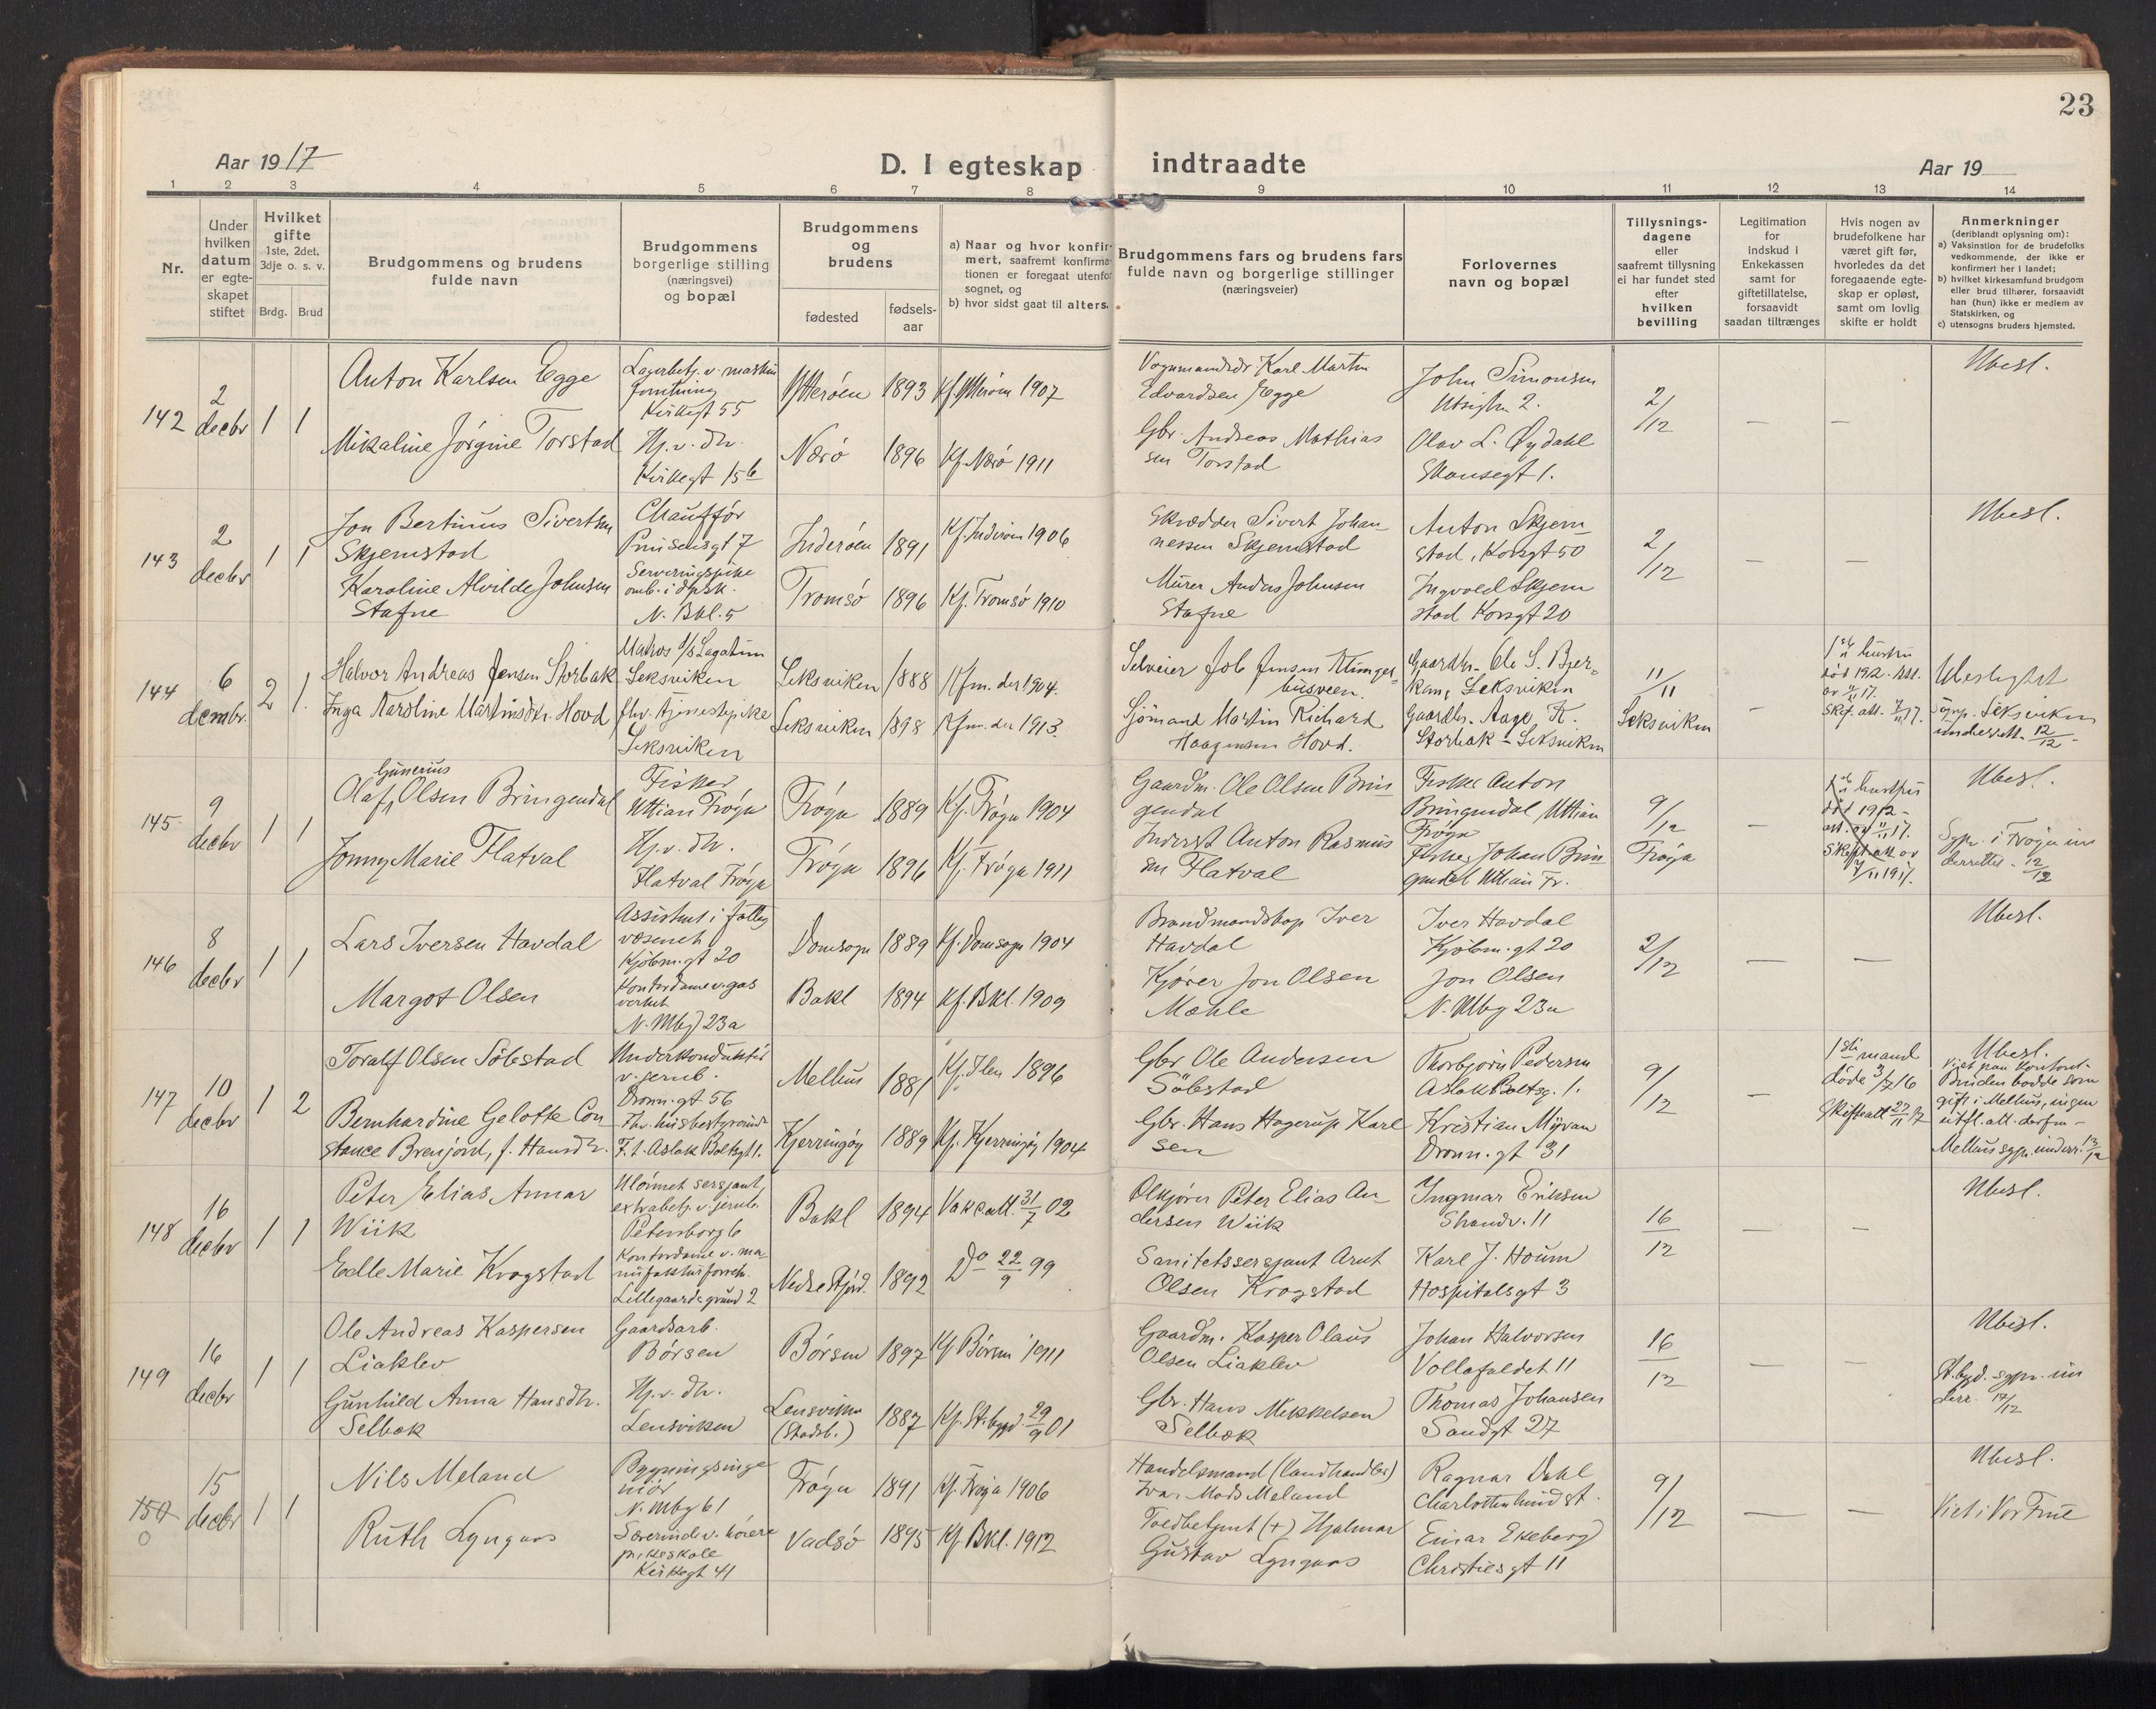 23
Aar 1917
D. I egteskap indtraadte
Aar 19
1 2 3 4 5 6 7 8 9 10 11 12 13 14
Nr.
Under
hvilken
datum
er egte-
skapet
stiftet
Hvilket
gifte
1ste, 2det,
3dje o. s. v.
Brdg. Brud
Brudgommens og brudens
fulde navn
Brudgommens
borgerlige stilling
(næringsvei)
og bopæl
Brudgommens
og
brudens
fødested
fødsels-
aar
a) Naar og hvor konfir-
mert, saafremt konfirma-
tionen er foregaat utenfo
sognet, og
b) hvor sidst gaat til alters.
Brudgommens fars og brudens fars
fulde navn og borgerlige stillinger
(næringsveier)
Forlovernes
navn og bopæl
Tillysnings-
dagene
eller
saafremt tillysning
ei har fundet sted
efter
hvilken
bevilling
Legitimation
for
indskud i
Enkekassen
samt for
giftetillatelse,
forsaavidt
saadan tiltrænges
Hvis nogen av
brudefolkene har
været gift før,
hvorledes da det
foregaaende egte-
skap er opløst,
samt om lovlig
skifte er holdt
Anmerkninger
(deriblandt oplysning om):
a) Vaksination for de brudefolks
vedkommende, der ikke er
konfirmert her i landet;
b) hvilket kirkesamfund brudgom
eller brud tilhører, forsaavidt
han (hun) ikke er medlem av
Statskirken, og
c) utensogns bruders hjemsted.
142
2
decbr
1 1
Anton Karlsen Egge
Mikaline Jørgine Torstad
Lagerbetj. v. maskin
forretning
Kirkegt 55
Hj. v. dr.
Kirkegt 15 b
Ytterøen 1893 Kf. Ytterøen 1907
Nærø 1896 Kf. Nærø 1911
Karl Martin
Edvardsen Egge
Gbr. Andreas Mathias
sen Torstad
John Simonsen
Utsigtn 2.
Olav L. Øydahl
Skansegt 1.
2/12
— —
Ubesl.
143
2
decbr
1 1
Jon Bertinus Sivertsen
Skjemstad
Karoline Alvilde Johnsen
Stafne
Chauffør
Prinsensgt 7
Serveringspike
omb. i dpsk.
N. Bkl. 5
Inderøen 1891 Kf. Inderøen 1906
Tromsø 1896 Kf. Tromsø 1910
Skrædder Sivert Johan-
nessen Skjemstad
Murer Anders Johnsen
Stafne
Anton Skjem
stad, Korsgt 50
Ingvald Skjem
stad Korsgt 20
2/12
— —
Ubesl.
144
6
decmbr.
2 1.
Halvor Andreas Jensen Storbak
Inga Karoline Martinsdtr. Hovd
Matros d/s
Leksviken
fhv. tjenestepike
Leksviken
Leksviken 1888 Kfm. der 1904.
Leksviken 1898 Kfm. der 1913.
Selveier Job Jensen Klunger-
husveen.
Sjömand Martin Richard
Haagensen Hovd.
Gaardbr. Ole S. Bjer-
kan, Leksviken
Gaardbr. Aage K.
Storbak – Leksviken
11/11
Leksviken
—
1ste hustru
död 1912. Att.
av 4/11 17.
Skif. att. 7/11 17.
Ubeslegtet
sogpr. Leksviken
underrett. 12/12 –
145
9
decbr
1 1
Gunerius
Olaf Olsen Bringendal
Jonny Marie Flatval
Fisker
Uttian Frøya
Hj. v. dr.
Flatval Frøya
Frøya 1889 Kf. Frøya 1904
Frøya 1896 Kf. Frøya 1911
Gaardm. Ole Olsen Brin
gendal
Inderst Anton Rasmus
sen Flatval
Fisker Anton
Bringendal, Uttian
Frøya
Fisker Johan Brin
gendal Uttian Fr.
9/12
Frøya
—
1ste hustru
död 1912 –
att. av 4/11 17.
Skift att av
7/11 1917.
Ubesl.
Sgpr. i Frøya un
derrettet – 12/12
146
8
decbr
1 1
Lars Iversen Havdal
Margot Olsen
Assistent i fattig
væsenet
Kjøbm. gt 20
Kontordame v. gas
verket
N. Mbg 23a
Domsogn 1889 Kf. Domsogn 1904
Bakl 1894 Kf. Bkl. 1909
Brandmandskap Iver
Havdal
Kjører Jon Olsen
Mæhle
Iver Havdal
Kjøbm. gt 20
Jon Olsen
N. Mbg 23a
2/12
— —
Ubesl.
147
10
decbr
1 2
Toralf Olsen Søbstad
Bernhardine Gelotte Con
stance Brenjord, f. Hansdtr.
Underkonduktør
v. jernb.
Dronn. gt 56
Fhv. husbestyrerinde
F. t. Aslak Boltsgt 1.
Melhus 1881 Kf. Ilen 1896
Kjerringøy 1889 Kf. Kjerringøy 1904
Gbr Ole Andersen
Søbstad
Gbr. Hans Hagerup Karl
sen
Thorbjørn Pedersen
Aslak Boltsg. 1.
Kristian Myran
Dronn. gt 31
9/12
—
1ste mand
døde 3/7 16
Skifteatt 27/11 17
Ubesl.
Viet paa kontoret.
Bruden bodde som
gift i Melhus, ingen
utfl. att. derfra –
Melhus sgpr. underr. 13/12
148
16
decbr
1 1
Peter Elias Annar
Wiik
Edle Marie Krogstad
Utlønnet sersjant,
extrabetj. v. jernb.
Petersborg 6
Kontordame v. ma
nufakturforretn.
Lillegaardsgrund 2
Bakl 1894 Vakc. att. 31/7 02
Nedre Stjørd. 1892 Do 22/9 99
Ølkjører Peter Elias An-
dersen Wiik
Sanitetssersjant Arnt
Olsen Krogstad
Ingmar Eriksen
Strandv. 11
Karl J. Houm
Hospitalsgt 3
16/12
— —
Ubesl.
149
16
decbr
1 1
Ole Andreas Kaspersen
Liaklev
Gunhild Anna Hansdtr.
Selbæk
Gaardsarb.
Børsen
Hj. v. dr.
Lensviken
Børsen 1897 Kf Børsen 1911
Lensviken
(Stadsb.) 1887 Kf. St. bygd. 29/9 01
Gaardm. Kasper Olaus
Olsen Liaklev
Gbr. Hans Mikkelsen
Selbæk
Johan Halvorsen
Vollafaldet 11
Thomas Johansen
Sandgt 27
16/12
— —
Ubesl.
St. bygd. sgpr. un
derr. 17/12
150
0
15
decbr
1 1
Nils Meland
Ruth Lyngaas
Bygningsinge
niør
N. Mbg 61
Lærerinde v. høiere
pikeskole
Kirkegt 41
Frøya 1891 Kf. Frøya 1906
Vadsø 1895 Kf. Bkl. 1912
Handelsmand (Landhandler)
Ivar Mads Meland
Toldbetjent (+) Hjalmar
Gustav Lyngaas
Ragnar Dahl
Charlottenlund st.
Einar Ekeberg
Christiesgt 11
9/12
— —
Ubesl.
Viet i Vor Frue